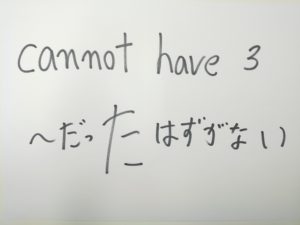 cannot have 3
～だったはずがない